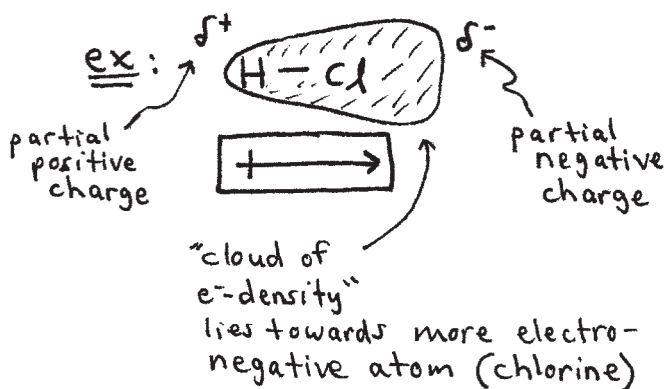 ex: δ+ H — Cl δ-
partial
positive
charge
partial
negative
charge
"cloud of
e--density"
lies towards more electro-
negative atom (chlorine)